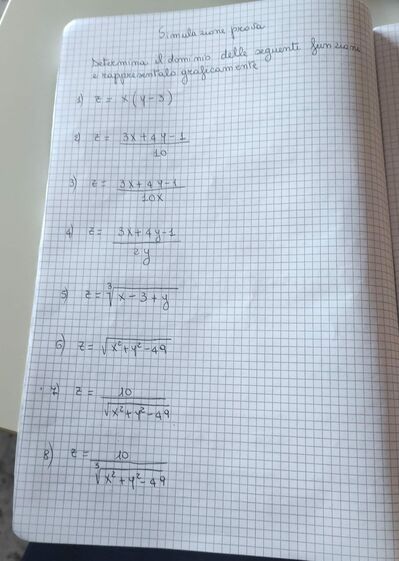 Simulazione prova
Determina il dominio delle seguenti funzione
e rappresentalo graficamente
1) z = x(y-3)
2) z = \frac{3x+4y-1}{10}
3) z = \frac{3x+4y-1}{10x}
4) z = \frac{3x+4y-1}{2y}
5) z = \sqrt[3]{x-3+y}
6) z = \sqrt{x²+y²-49}
7) z = \frac{10}{\sqrt{x²+y²-49}}
8) z = \frac{10}{\sqrt[3]{x²+y²-49}}